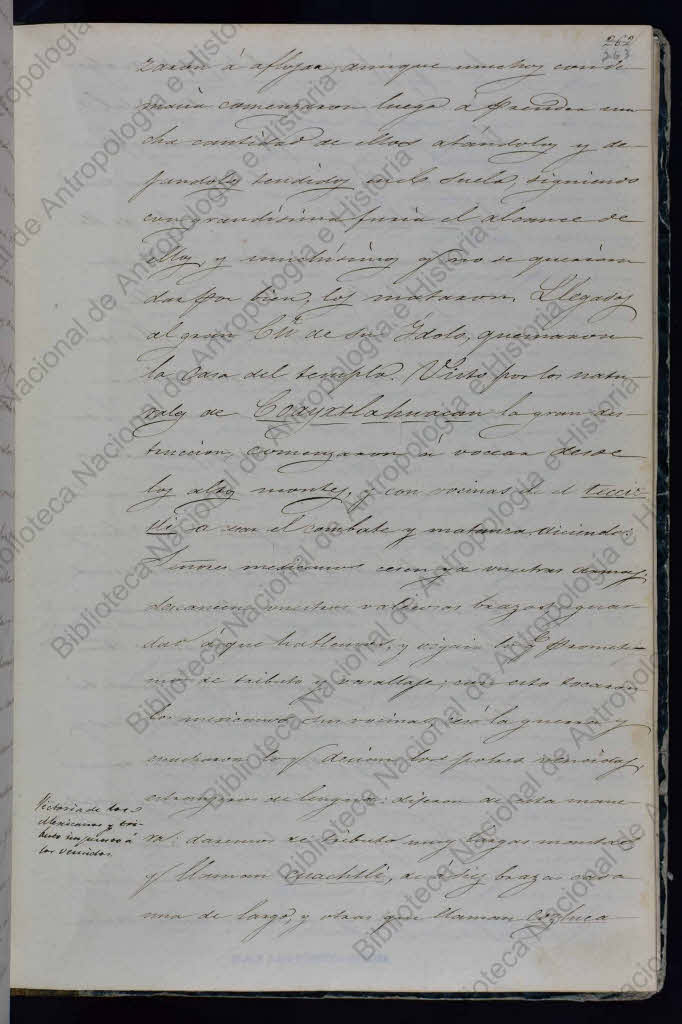 262
363
zaron á aflojar, aunque muchos con de-
macia comenzaron luego á prender mu-
cha cantidad de ellos atándolos y de-
jandolos tendidos en el suelo, siguieron
con grandísima furia el alcance de
ellos, y muchísimos q no se querian
dar por bien, los mataron. Llegados
al gran Cú de su Ydolo, quemaron
la casa del templo. Visto por los natu-
rales de Coayxtlahuacan la gran des-
truccion, comenzaron á vocear desde
los altos montes, y con vocinas de el teccis-
tli a cesar el combate y matanza, diciendo:
Señores mexicanos cesen ya vuestras armas,
descancen vuestros valerosos brazos, y guar-
dad á que hablemos, y oigais lo q prometi-
mos de tributo y vasallaje; con esto tocaron
los mexicanos sus vocinas, cesó la guerra y
escucharon lo q decian los pobres vencidos,
estrangeros de lengua: dijeron de esta mane-
ra: daremos de tributo muy largas mantas
q llaman cuachtli, de á diez brazas cada
una de largo, y otras que llaman
Victoria de los
Mexicanos y tri-
buto impuesto á
los vencidos.
Biblioteca Nacional de Antropología e Historia